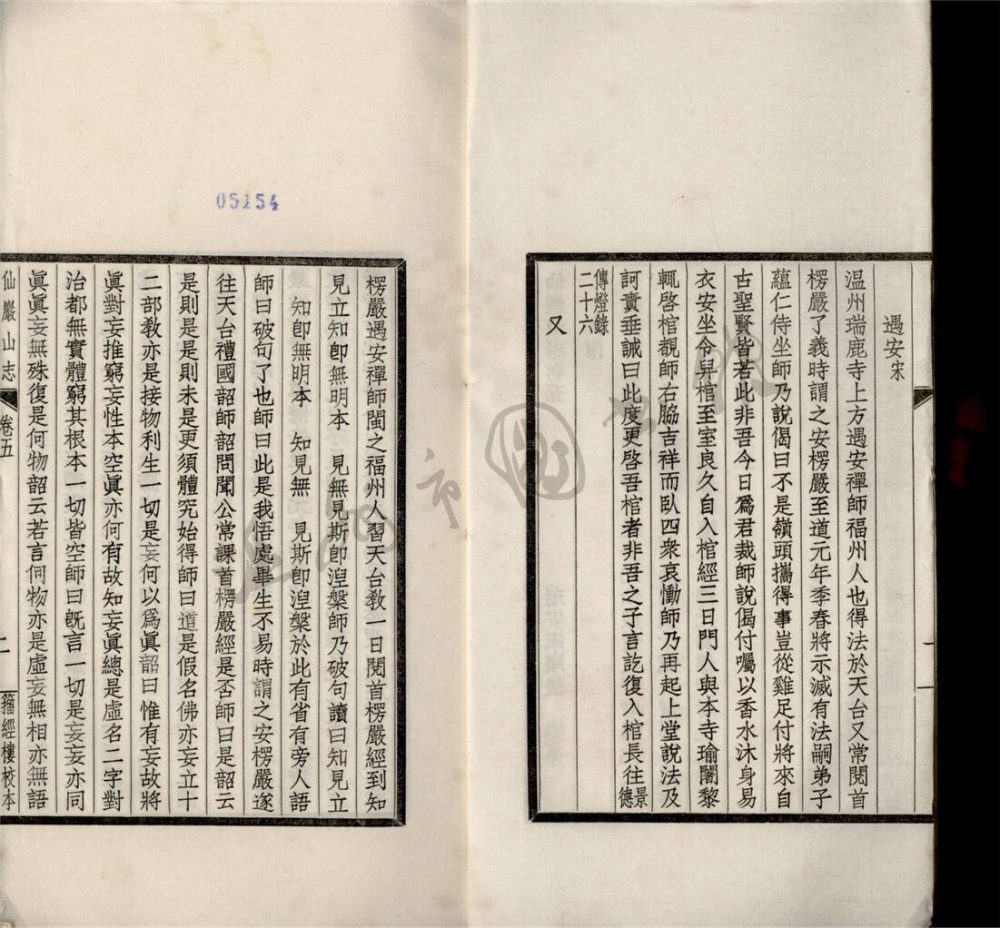 遇安宋
温州瑞鹿寺上方遇安禪師福州人也得法於天台又常閱首
楞嚴了義時謂之安楞嚴至道元年季春將示滅有法嗣弟子
蘊仁侍坐師乃說偈曰不是嶺頭攜得事豈從雞足付將來自
古聖賢皆若此非吾今日爲君裁師說偈付囑以香水沐身易
衣安坐令舁棺至室良久自入棺經三日門人與本寺瑜闍黎
輒啓棺覩師右脇吉祥而臥四衆哀慟師乃再起上堂說法及
訶責垂誡曰此度更啓吾棺者非吾之子言訖復入棺長往景德
傳燈錄
二十六
又
楞嚴遇安禪師閩之福州人習天台敎一日閱首楞嚴經到知
見立知卽無明本 見無見斯卽湼槃師乃破句讀曰知見立
知卽無明本 知見無 見斯卽湼槃於此有省有旁人語
師曰破句了也師曰此是我悟處畢生不易時謂之安楞嚴遂
往天台禮國韶師韶問聞公常課首楞嚴經是否師曰是韶云
是則是是則未是更須體究始得師曰道是假名佛亦妄立十
二部敎亦是接物利生一切是妄何以爲眞韶曰惟有妄故將
眞對妄推窮妄性本空眞亦何有故知妄眞總是虛名二字對
治都無實體窮其根本一切皆空師曰旣言一切是妄妄亦同
眞眞妄無殊復是何物韶云若言何物亦是虛妄無相亦無語
仙巖山志
卷五
二
籀經樓校本
05154